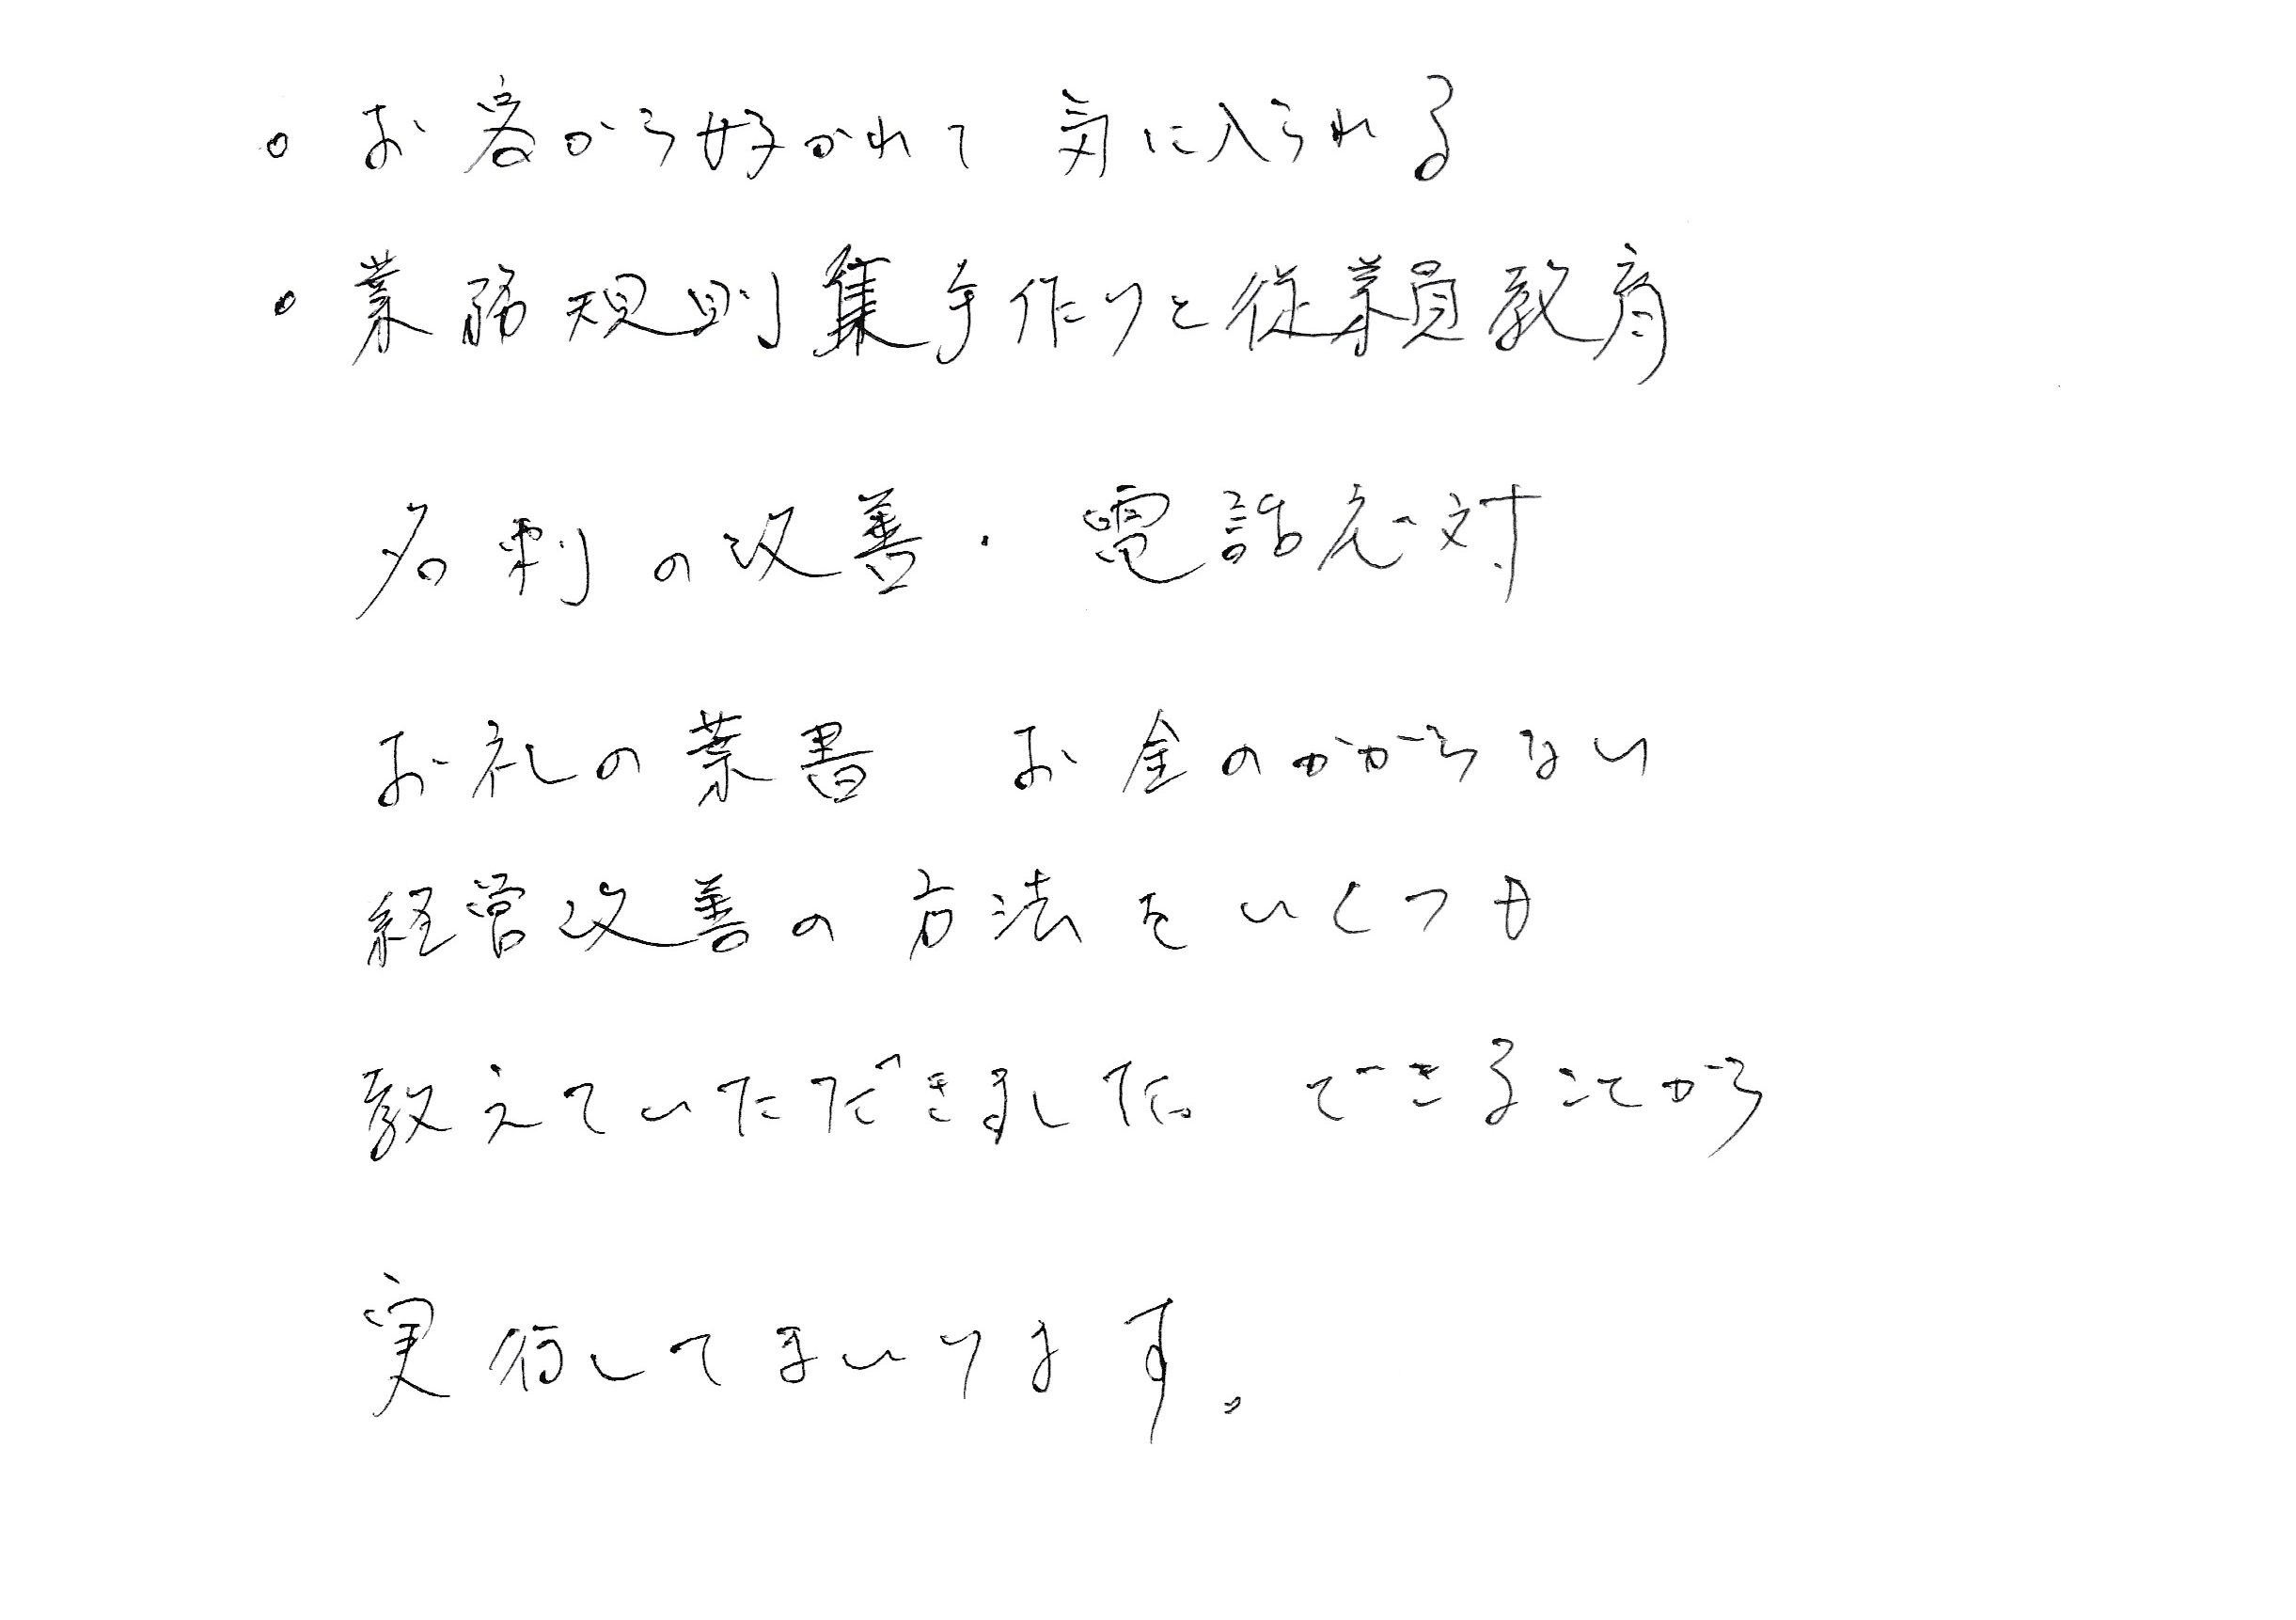 • お客から好かれて 気に入られる
• 業務規則集手作りと従業員教育
名刺の改善・電話応対
お礼の葉書 お金のかからない
経営改善の方法をいくつも
教えていただきました。できることから
実行してまいります。